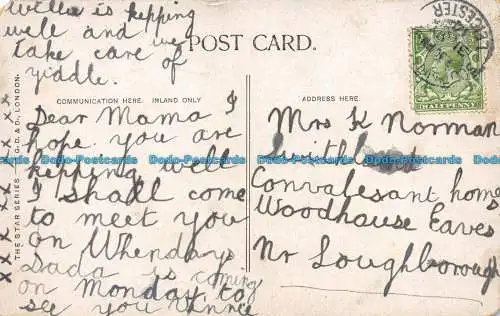 Willa is kepping
well and we
take care of
yiddle.
POST CARD.
COMMUNICATION HERE. INLAND ONLY
ADDRESS HERE.
HALFPENNY
LEICESTER
THE STAR SERIES
G. D. & D., LONDON.
Dear Mama I
hope you are
kepping well
I shall come
to meet you
on Whendays
Dada is coming
on Monday to
see you
Mrs K Norman
Convalesant home
Woodhouse Eaves
Nr Loughborough
x x x x x x x
Dado-Postcards Dado-Postcards Dado-Postcards Dado-Postcards